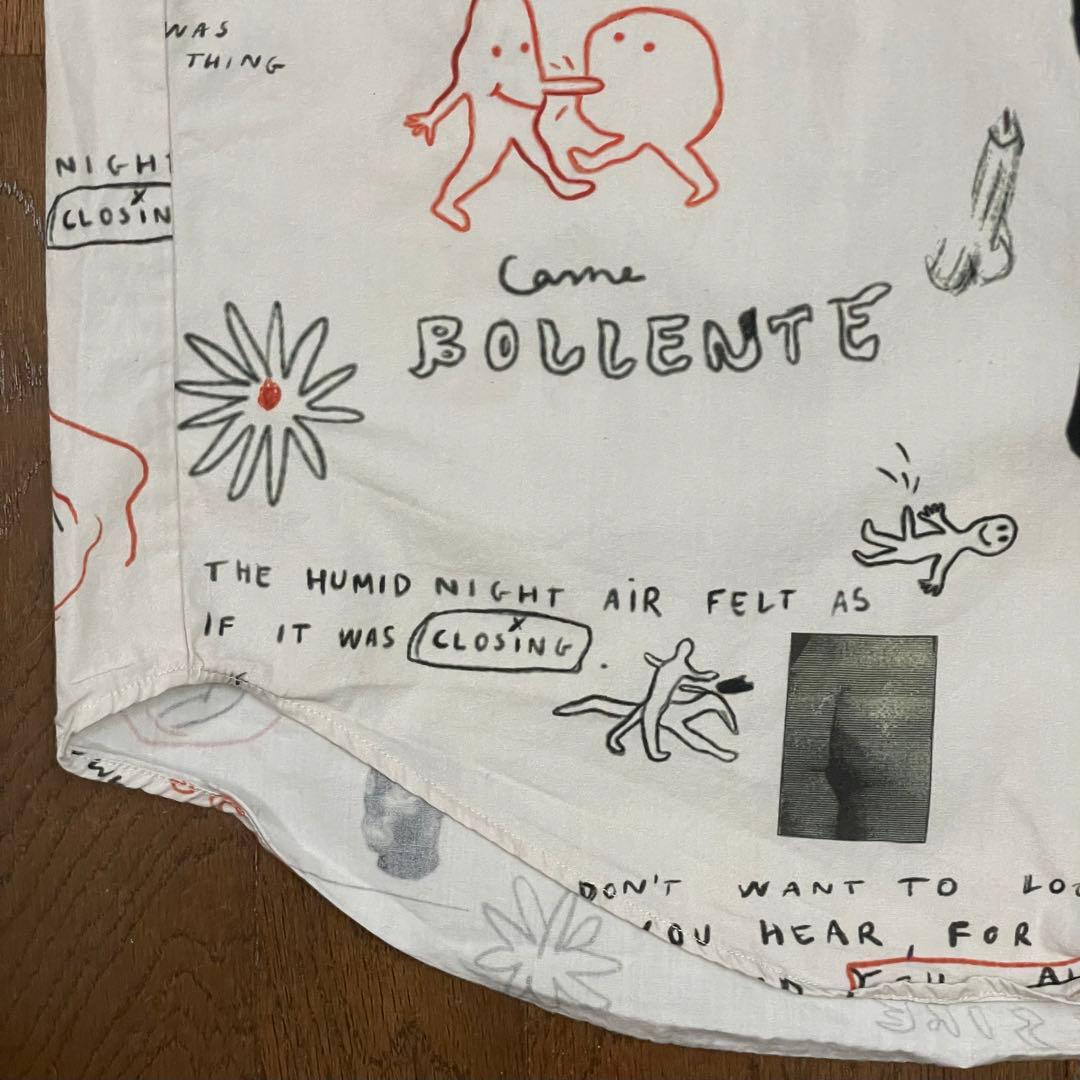 WAS
THING
NIGH
CLOSIN
Carne
BOLLENTE
THE HUMID NIGHT AIR FELT AS
IF IT WAS CLOSING.
DON'T WANT TO LO
YOU HEAR, FOR